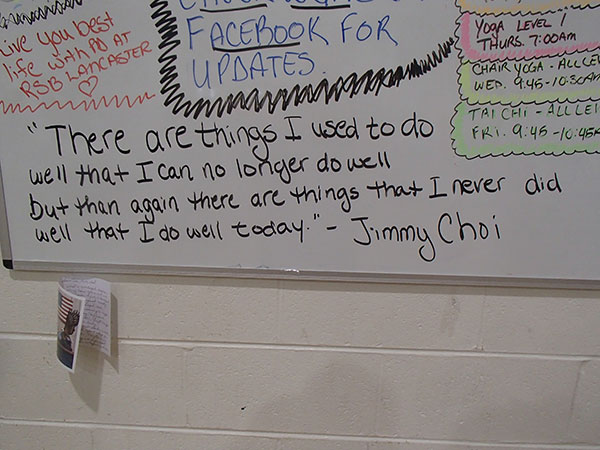 Live you best
life with PD AT
RSB LANCASTER
FACEBOOK FOR
UPDATES
YOGA LEVEL 1
THURS. 7:00am
CHAIR YOGA - ALL LE
WED. 9:45-10:30am
TAI CHI - ALL LE
FRI. 9:45-10:45
"There are things I used to do
well that I can no longer do well
but than again there are things that I never did
well that I do well today." - Jimmy Choi